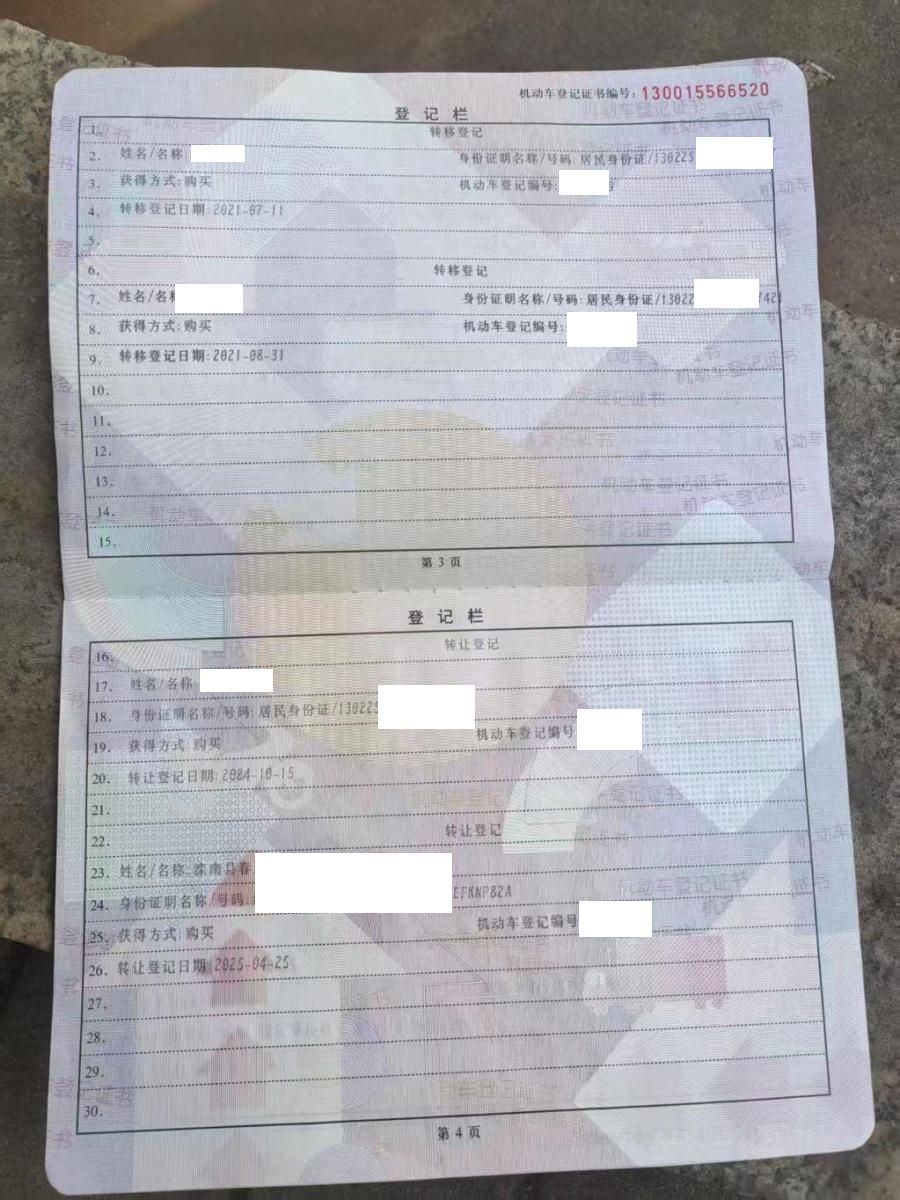 机动车登记证书编号：130015566520
登记栏
1. 转移登记
2. 姓名/名称: 身份证明名称/号码: 居民身份证/130225
3. 获得方式:购买 机动车登记编号: 9
4. 转移登记日期:2021-07-11
5.
6. 转移登记
7. 姓名/名称 身份证明名称/号码: 居民身份证/13022 742
8. 获得方式:购买 机动车登记编号:
9. 转移登记日期:2021-08-31
10.
11.
12.
13.
14.
15.
第 3 页
登记栏
16. 转让登记
17. 姓名/名称
18. 身份证明名称/号码: 居民身份证/130225
19. 获得方式:购买 机动车登记编号
20. 转让登记日期:2024-10-15
21.
22. 转让登记
23. 姓名/名称: 滦南县春
24. 身份证明名称/号码: EFKNP82A
25. 获得方式:购买 机动车登记编号
26. 转让登记日期 2025-04-25
27.
28.
29.
30.
第 4 页